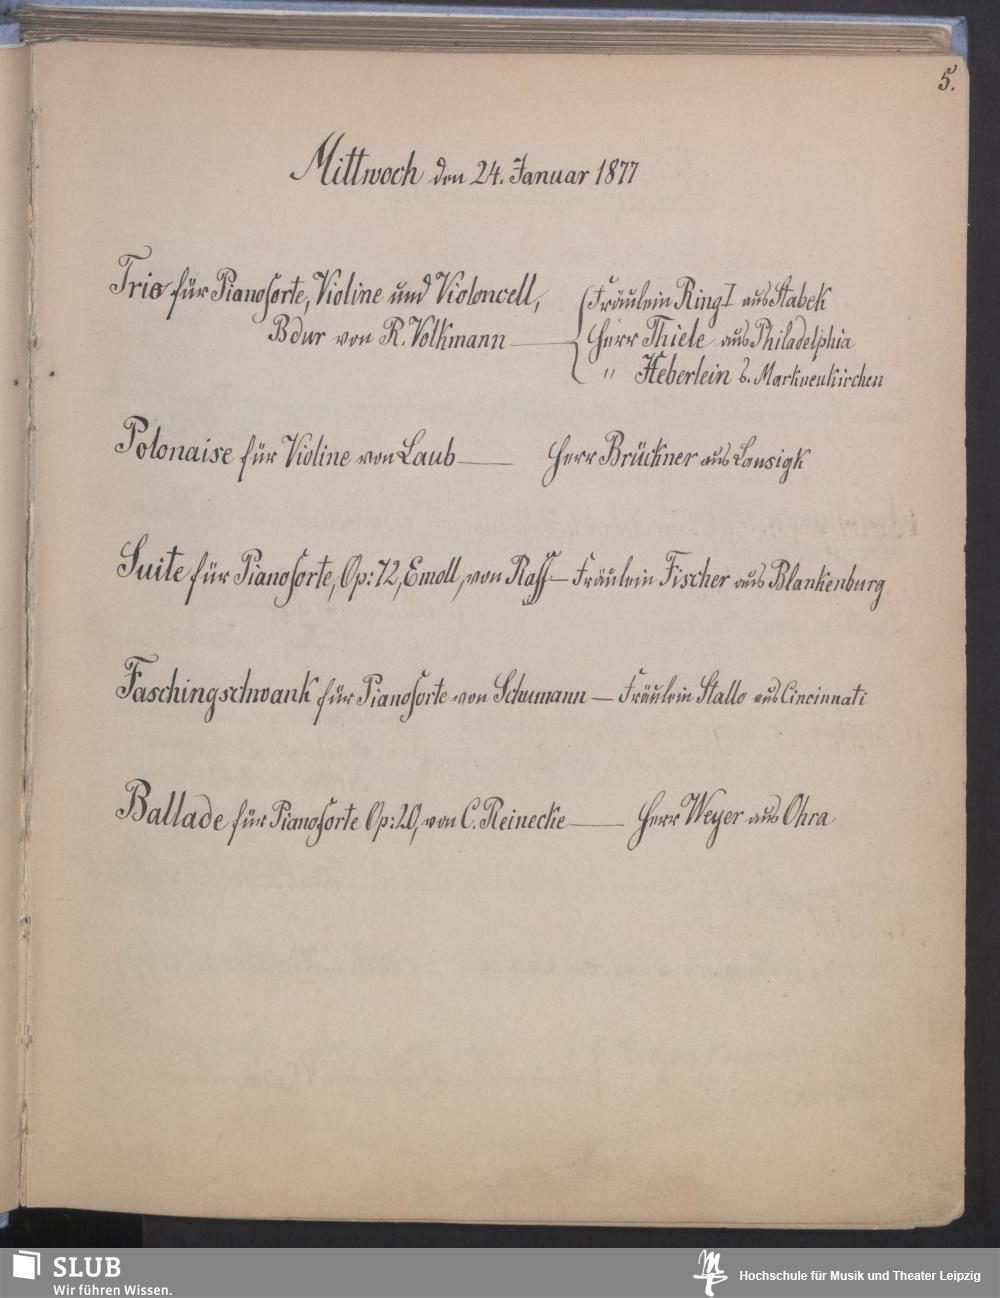 5.
Mittwoch den 24. Januar 1877
Trio für Pianoforte, Violine und Violoncell,
Bdur von R. Volkmann — Fräulein Ring I aus Stabek
Herr Thiele aus Philadelphia
" Heberlein s. Markneukirchen
Polonaise für Violine von Laub — Herr Brückner aus Lausigk
Suite für Pianoforte, Op: 72, Emoll, von Raff — Fräulein Fischer aus Blankenburg
Faschingschwank für Pianoforte von Schumann — Fräulein Stallo aus Cincinnati
Ballade für Pianoforte Op: 20, von C. Reinecke — Herr Weyer aus Ohra
SLUB
Wir führen Wissen.
Hochschule für Musik und Theater Leipzig